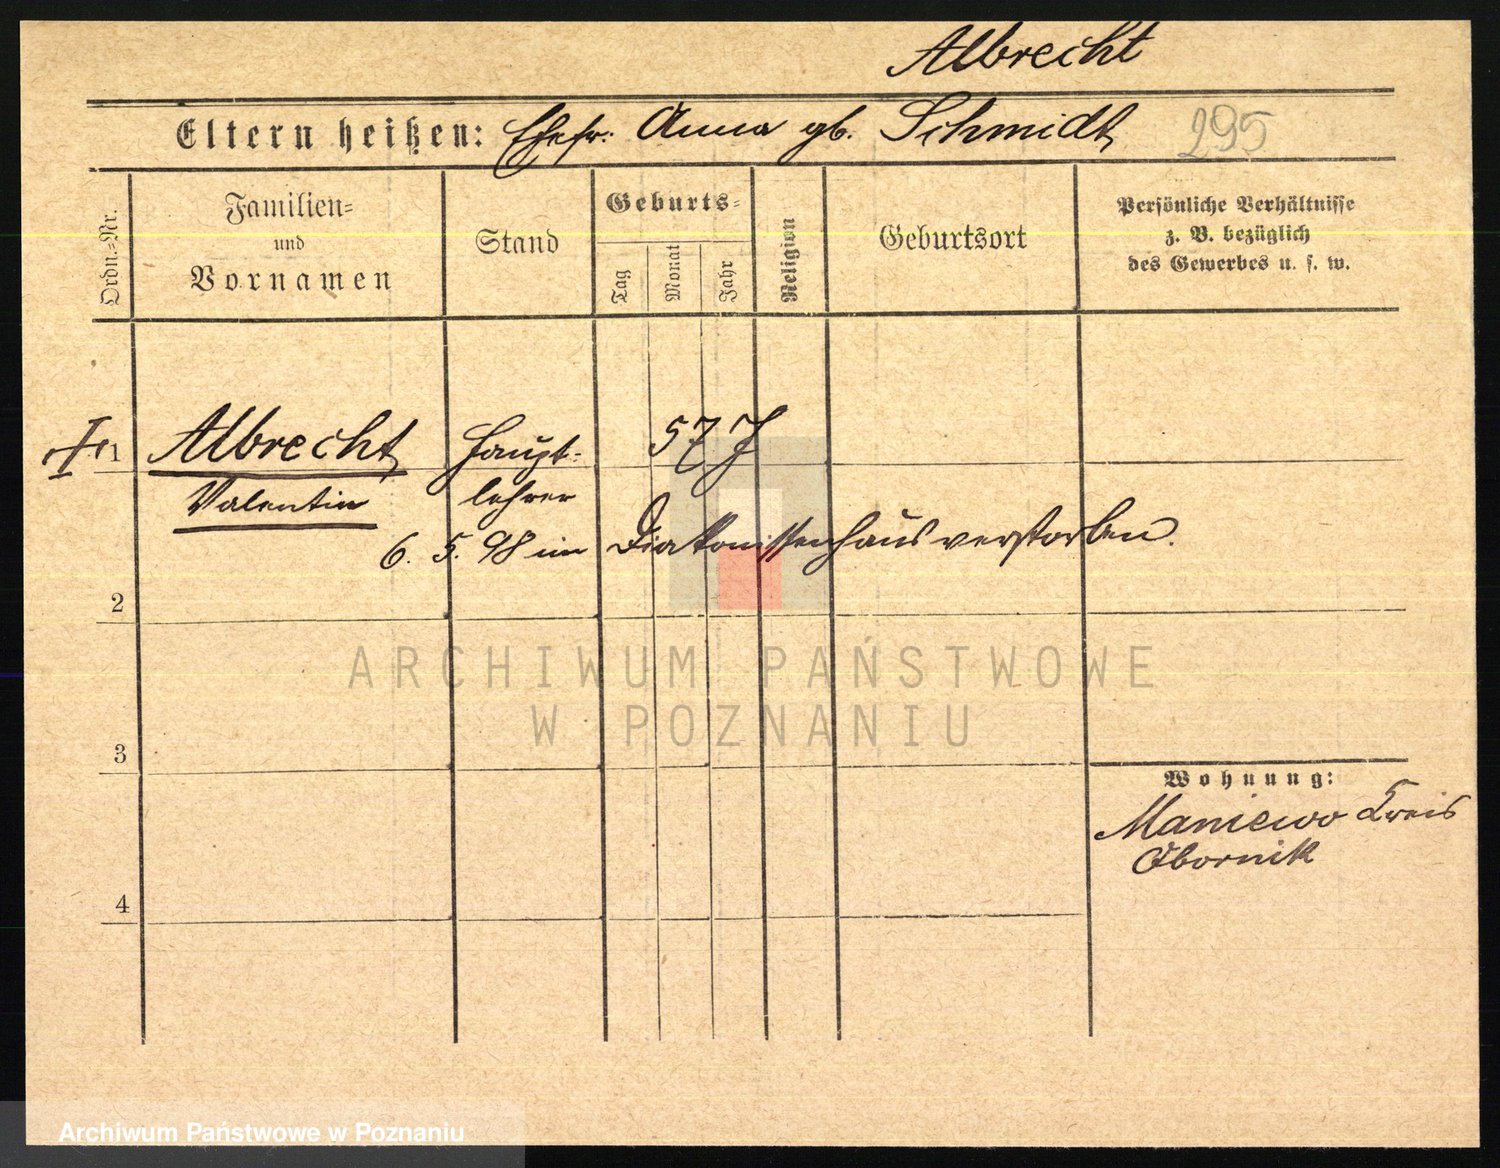 Albrecht
Eltern heißen: Ehefr. Anna gb. Schmidt 295
Ordn.-Nr.
Familien-
und
Vornamen
Stand
Geburts-
Tag
Monat
Jahr
Religion
Geburtsort
Persönliche Verhältnisse
z. B. bezüglich
des Gewerbes u. s. w.
1 Albrecht Haupt- 57 J
Valentin lehrer
6. 5. 98 im Diakonissenhaus verstorben.
2
ARCHIWUM PAŃSTWOWE
W POZNANIU
3
Wohnung:
Maniewo Kreis
Obornik
4
Archiwum Państwowe w Poznaniu